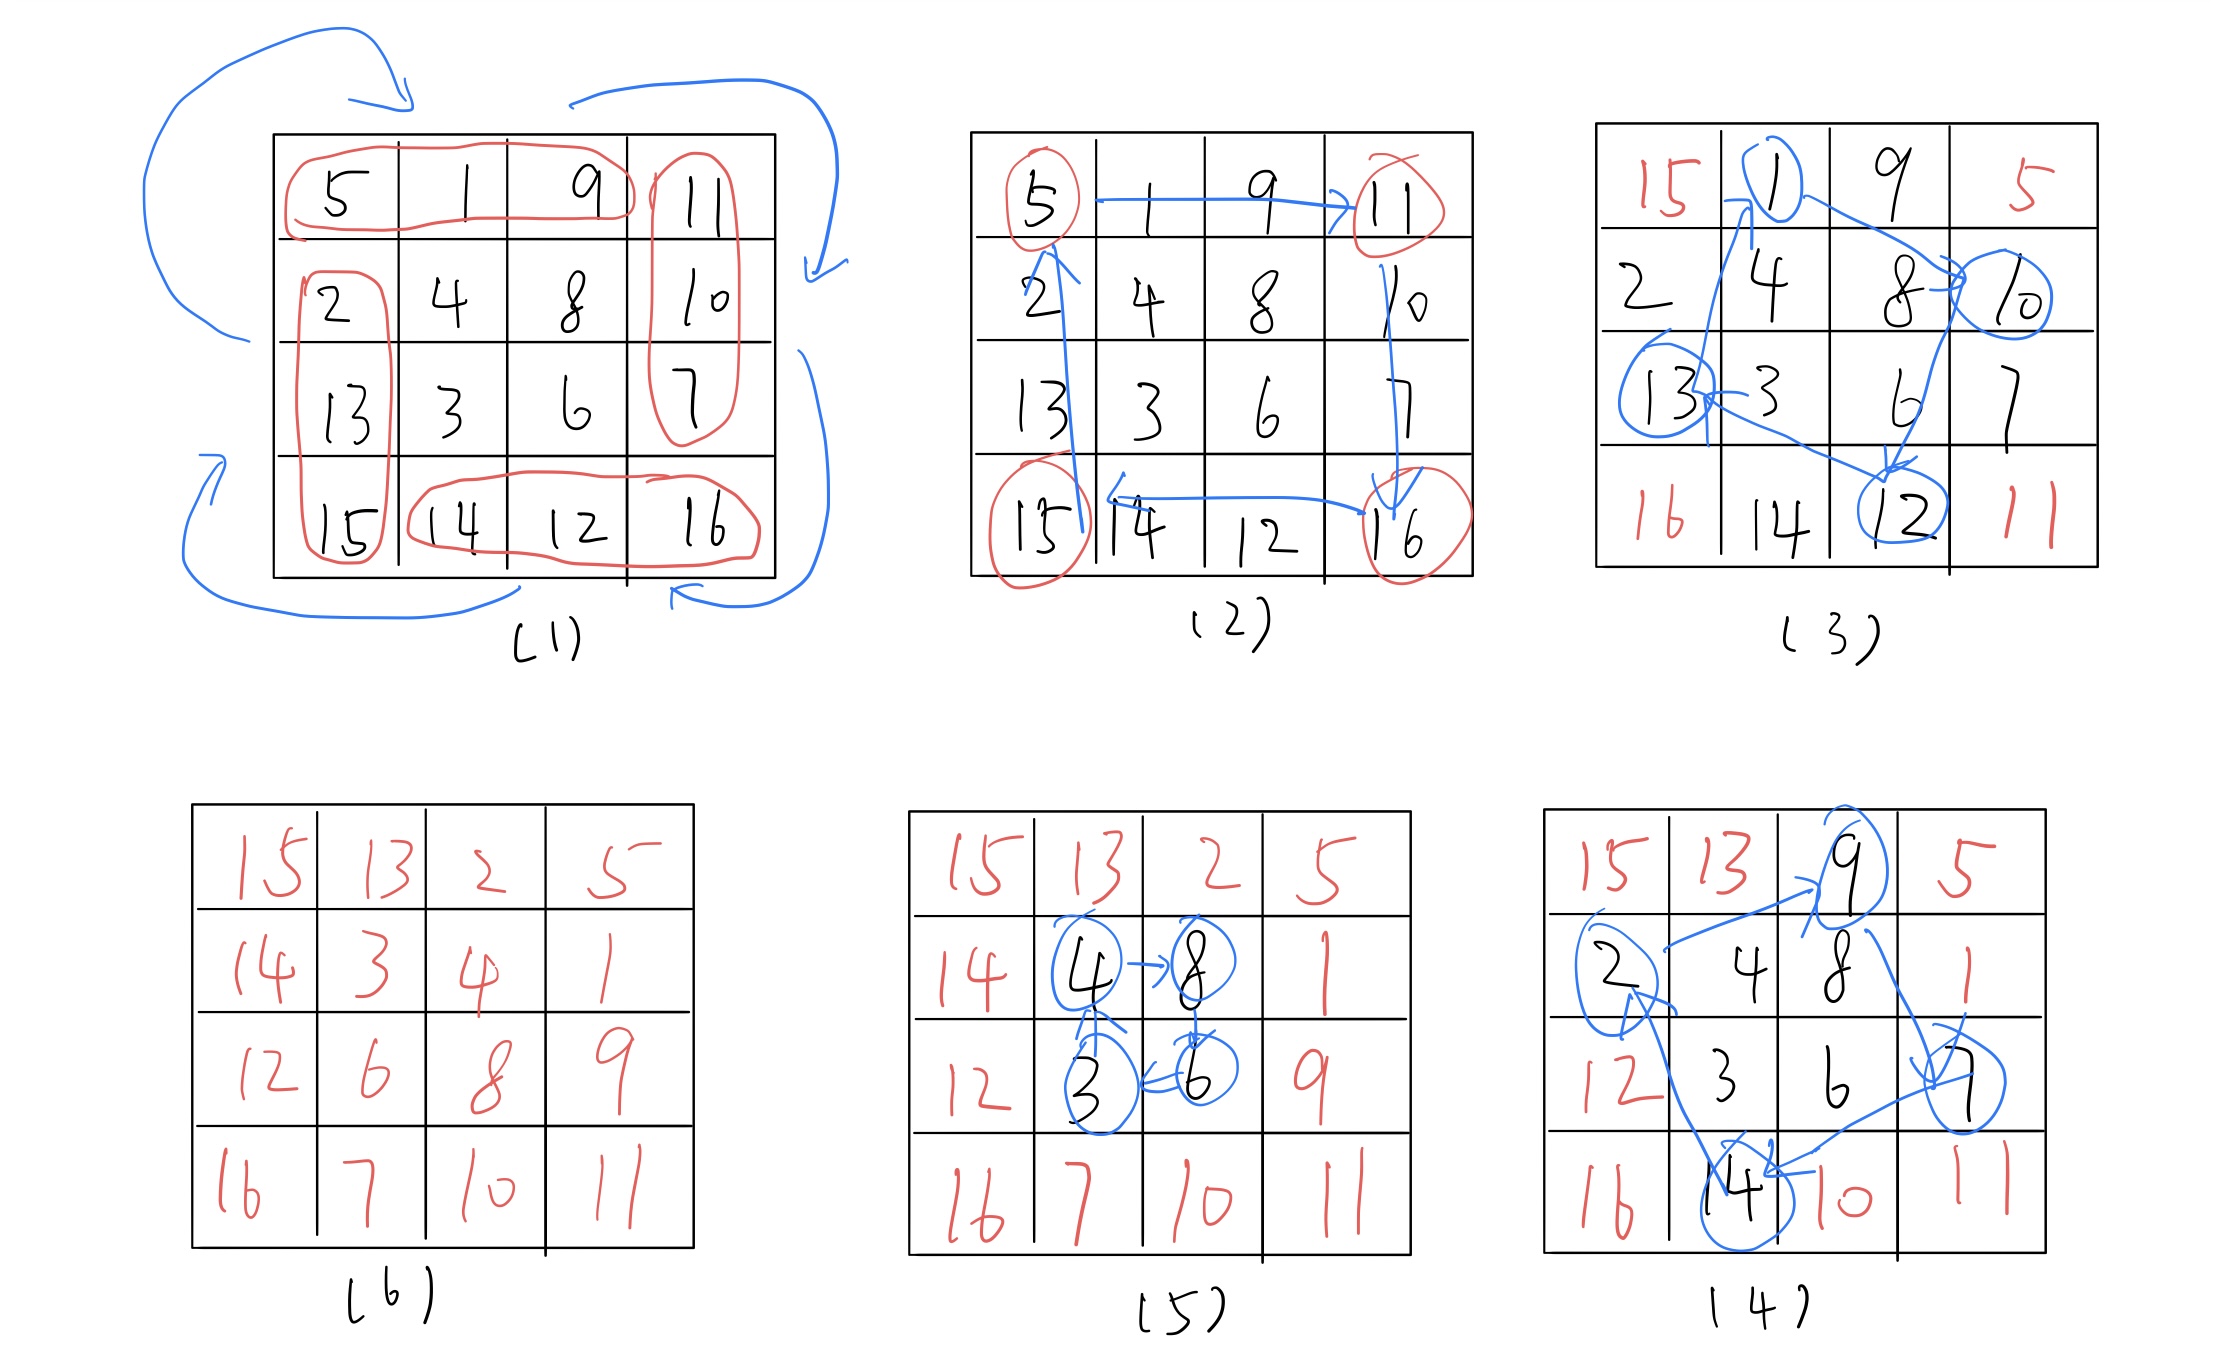 5 1 9 11
2 4 8 10
13 3 6 7
15 14 12 16
(1)
5 1 9 11
2 4 8 10
13 3 6 7
15 14 12 16
(2)
15 1 9 5
2 4 8 10
13 3 6 7
16 14 12 11
(3)
15 13 2 5
14 3 4 1
12 6 8 9
16 7 10 11
(6)
15 13 2 5
14 4 8 1
12 3 6 9
16 7 10 11
(5)
15 13 9 5
2 4 8 1
12 3 6 7
16 14 10 11
(4)